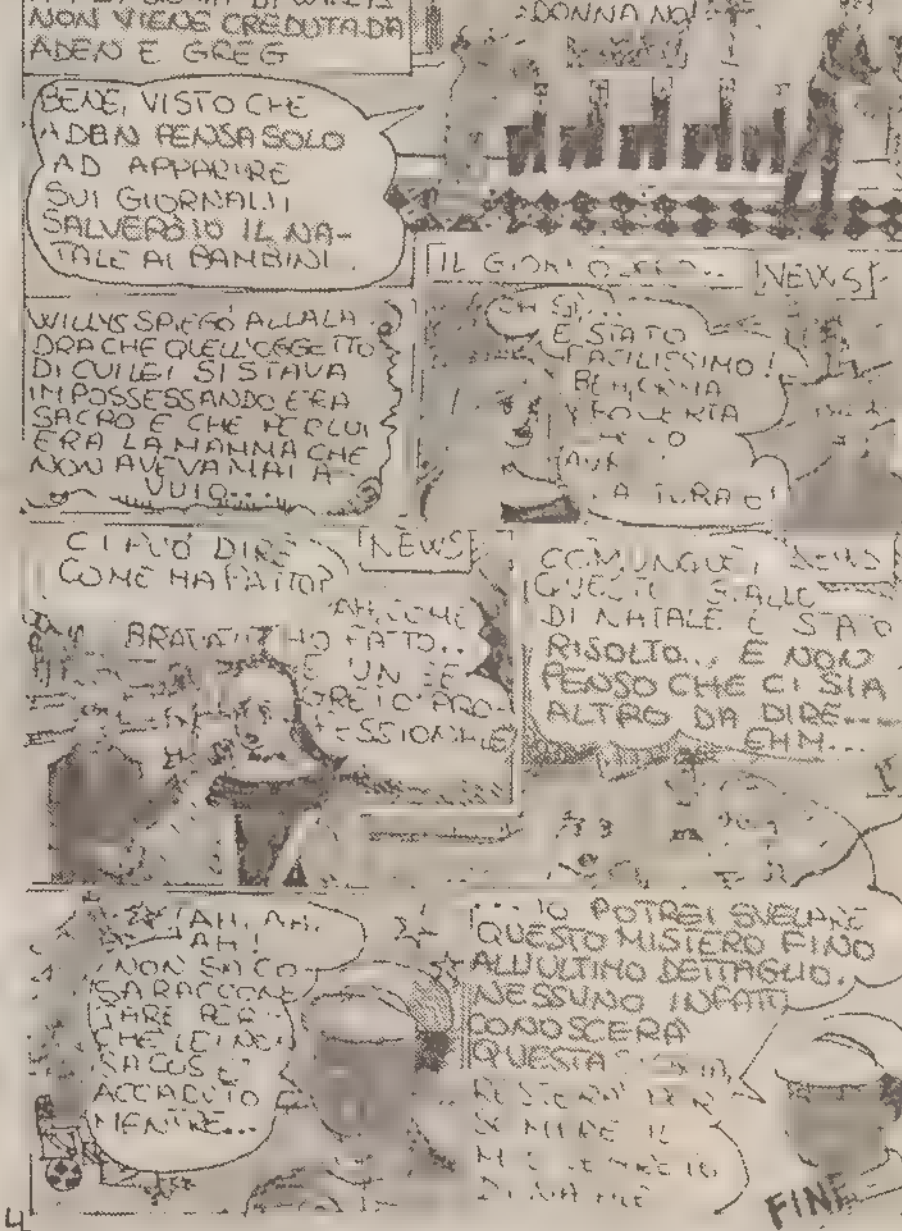 NON VIENE CREDUTA DA
ADEN E GREG
DONNA NO!
BENE, VISTO CHE
ADEN PENSA SOLO
AD APPARIRE
SUI GIORNALI
SALVERÒ IO IL NA-
TALE AI BAMBINI.
IL GIORNO
NEWS
WILLYS SPIEGÒ ALLA LA
DRA CHE QUELL'OGGETTO
DI CUI LEI SI STAVA
IMPOSSESSANDO ERA
SACRO E CHE PER LUI
ERA LA MAMMA CHE
NON AVEVA MAI A-
VUTO...
È STATO
FACILISSIMO!
CI PUÒ DIRE
COME HA FATTO?
NEWS
AH, COME
HO FATTO..
È UN SE
GRETO PRO-
FESSIONALE
COMUNQUE,
NEWS
QUESTO GIALLO
DI NATALE È STATO
RISOLTO... E NON
PENSO CHE CI SIA
ALTRO DA DIRE---
EHM...
AH, AH,
AH!
NON SA CO-
SA RACCON
TARE PER-
CHE LEI NON
SA COS'È
ACCADUTO
MENTRE...
... IO POTREI SVELARE
QUESTO MISTERO FINO
ALL'ULTIMO DETTAGLIO.
NESSUNO INFATTI
CONOSCERÀ
QUESTA
RESTERÀ PER
SEMPRE IL
DI NATALE
FINE
4